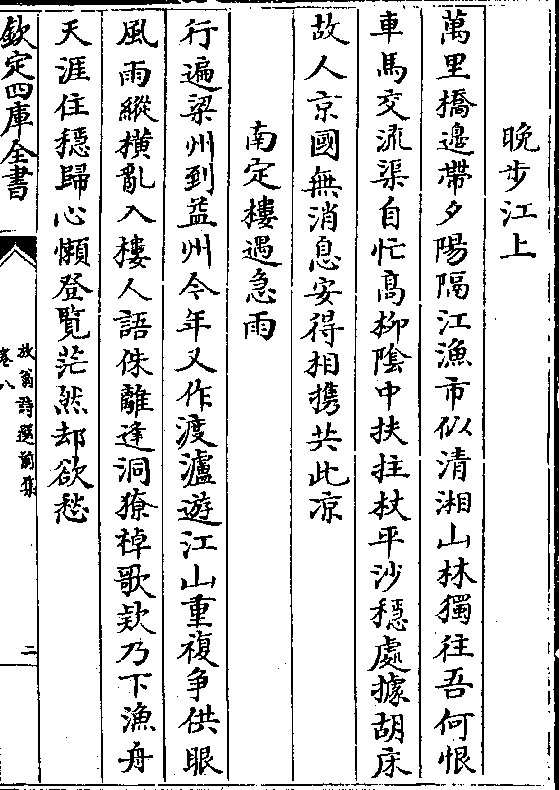 晚步江上
萬里橋邊帶夕陽隔江漁市似清湘山林獨往吾何恨
車馬交流渠自忙髙栁陰中扶拄杖平沙穩處據胡床
故人京國無消息安得相擕共此凉
南定樓遇急雨
行遍梁州到益州今年又作渡瀘遊江山重複爭供眼
風雨縱横亂入樓人語侏離逢洞獠棹歌欸乃下漁舟
天涯住穩歸心懶登覽茫然却欲愁
欽定四庫全書
放翁詩選前集
卷八
二